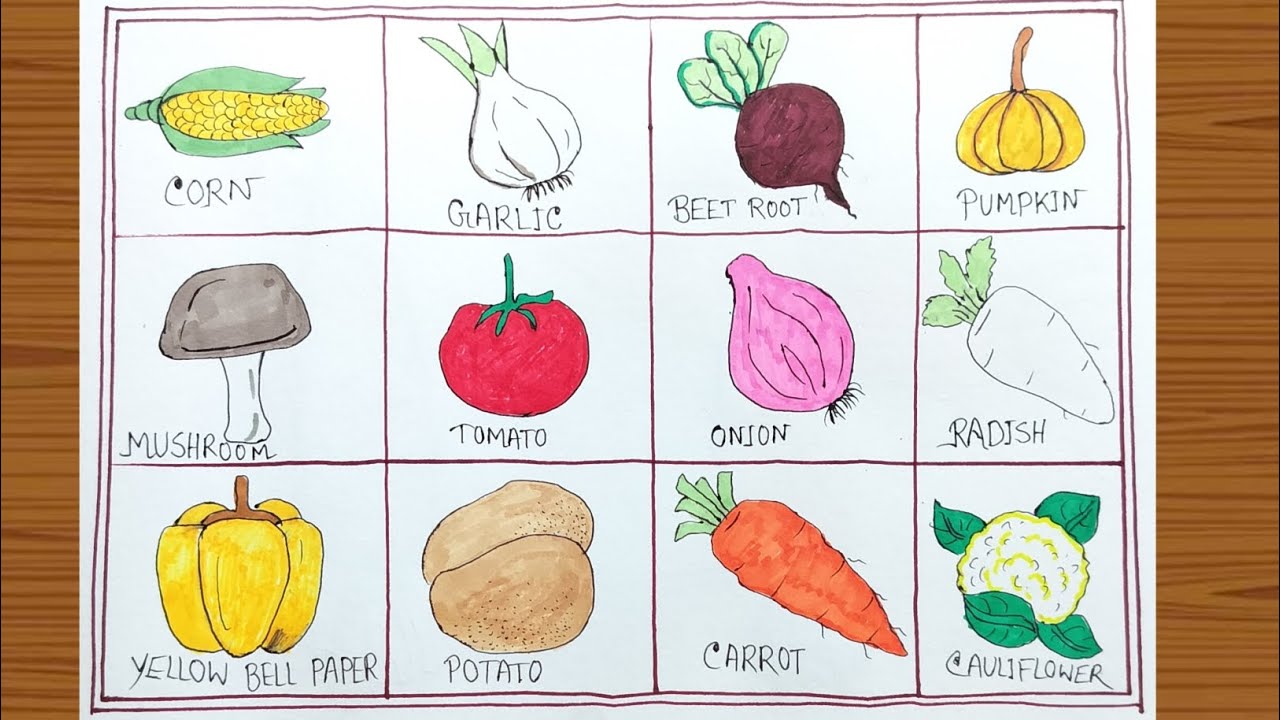 CORN
GARLIC
BEET ROOT
PUMPKIN
MUSHROOM
TOMATO
ONION
RADISH
YELLOW BELL PAPER
POTATO
CARROT
CAULIFLOWER